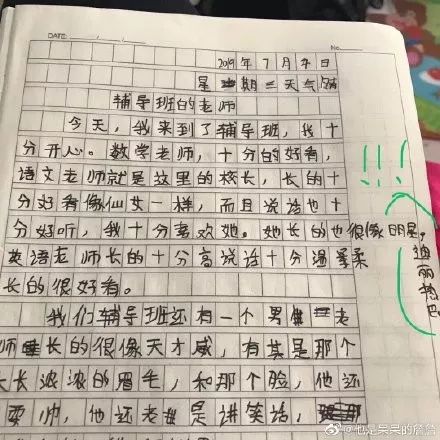 DATE
No.
2019年7月7日
星期三天气
辅导班的老师
今天,我来到了辅导班,我十
分开心。数学老师,十分的好看,
语文老师就是这里的校长,长的十
分好看像仙女一样,而且说话也十
分好听,我十分喜欢她。她长的也很像明星,
迪丽热巴
英语老师长的十分高说话十分温柔
长的很好看。
我们辅导班还有一个男老
师长的很像天才威,有其是那个
长浓浓的眉毛,和那个脸,他还
耍帅,他还老是讲笑话,
@也是果果的詹詹